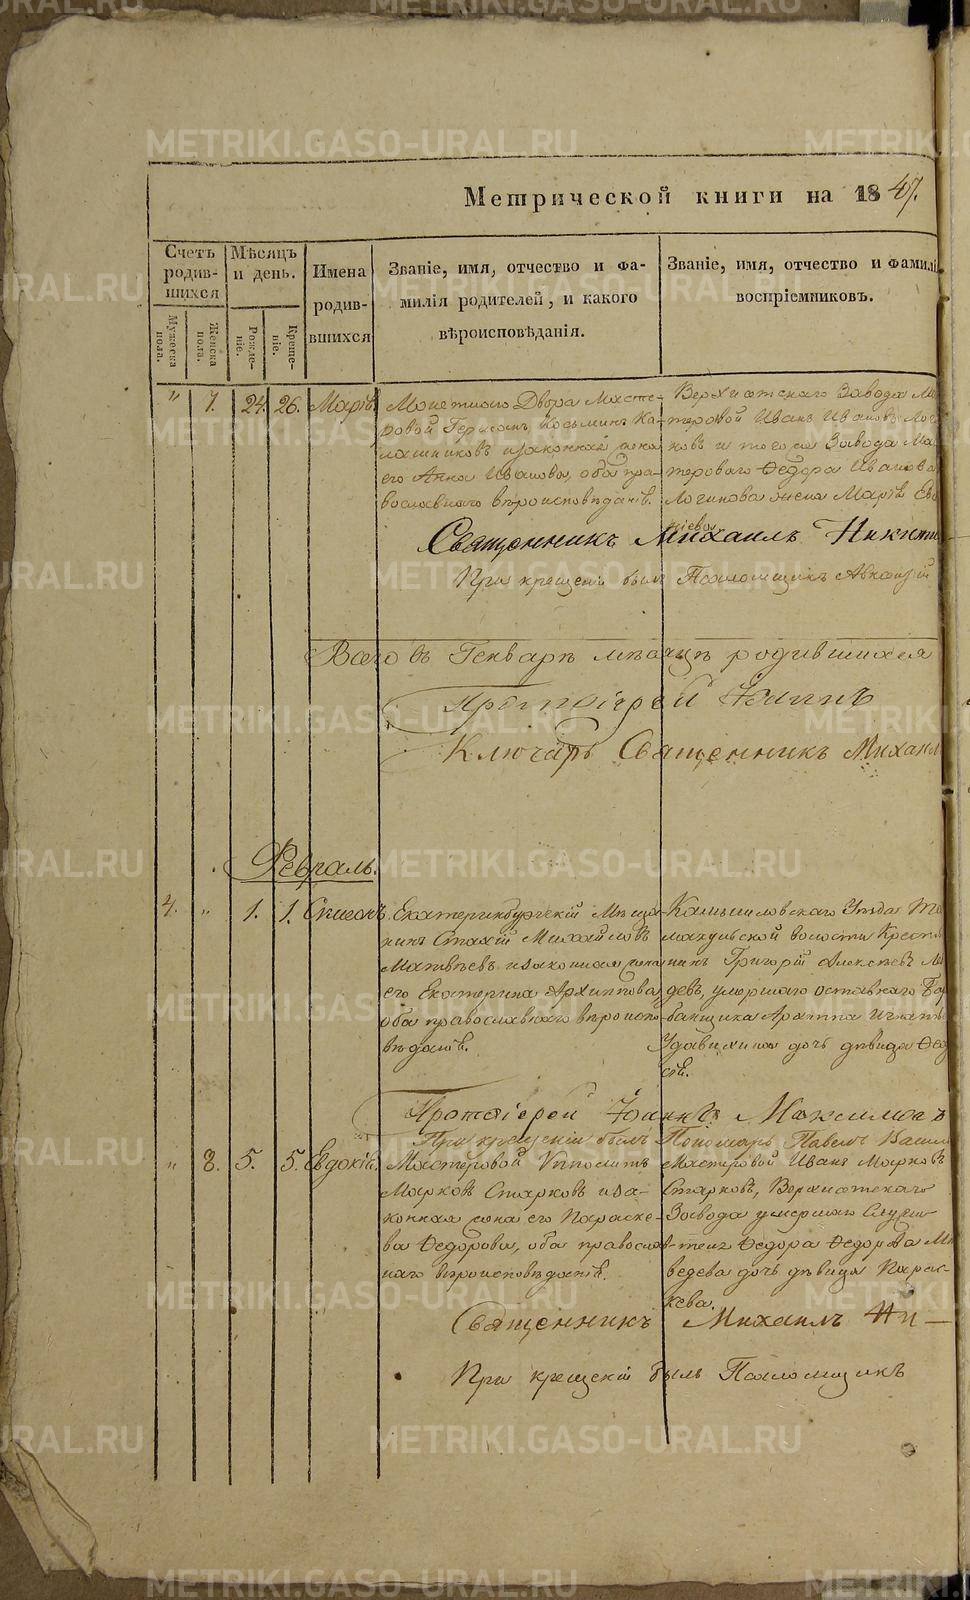 Метрической книги на 1847.
Счетъ родив-шихся
Мѣсяцъ и день.
Имена родив-вшихся
Званіе, имя, отчество и фа-
милія родителей, и какого
вѣроисповѣданія.
Званіе, имя, отчество и фамилі
воспріемниковъ.
Мужеска пола.
Женска пола.
Рожде-ніе.
Креще-ніе.
" 7. 24. 26. Марія.
Монетнаго Двора Масте-
ровой Германъ Косьминъ Ка-
лашниковъ и законная жена
его Анна Иванова, оба пра-
вославнаго вѣроисповѣданія.
Верхисетскаго Завода Ма
теровой Иванъ Ивановъ Логи
новъ и того же Завода Ма
тероваго Ѳедора Иванова
Логинова жена Марія Ев
гіева
Священникъ Михаилъ Никит
При крещеніи былъ Псаломщикъ Авканій
Всего въ Генварѣ мѣсяцѣ родившихся
Протоіерей Іоаннъ
Ключарь Священникъ Михаил
Февраль.
4. " 1. 1. Симеонъ.
Екатеринбургскій Мѣща-
нинъ Стахій Михайловъ
Матвѣевъ и законная жена
его Екатерина Архиппова,
оба православнаго вѣроиспо-
вѣданія.
Камышловскаго Уѣзда Та
макульской волости Крестья
нинъ Григорій Алексѣевъ Ме
девъ, умершаго отставнаго Ба
банщика Архипа Игнать
Удавихина дочь дѣвица Ѳеод
сія.
Протоіерей Іоаннъ Максимов
При крещеніи былъ Пономарь Павелъ Васил
" 8. 5. 5. Евдокія.
Мастеровой Ипполитъ
Марковъ Старковъ и за-
конная жена его Параске-
ва Ѳедорова, оба правосла-
внаго вѣроисповѣданія.
Мастеровой Иванъ Марковъ
Старковъ, Верхисетскаго
Завода умершаго Служи-
теля Ѳедора Ѳедорова Ме
ведева дочь дѣвица Парас-
кева.
Священникъ Михаилъ Ни—
При крещеніи былъ Псаломщикъ
METRIKI.GASO-URAL.RU